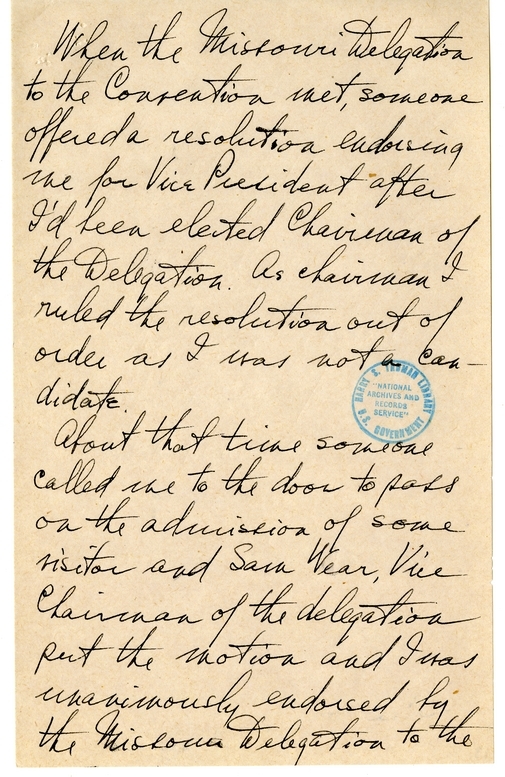 When the Missouri Delegation
to the Convention met, someone
offered a resolution endorsing
me for Vice President after
I'd been elected Chairman of
the Delegation. As chairman I
ruled the resolution out of
order as I was not a can-
didate.
HARRY S. TRUMAN LIBRARY
"NATIONAL
ARCHIVES AND
RECORDS
SERVICE"
U.S. GOVERNMENT
About that time someone
called me to the door to pass
on the admission of some
visitor and Sam Wear, Vice
Chairman of the delegation
put the motion and I was
unanimously endorsed by
the Missouri Delegation to the